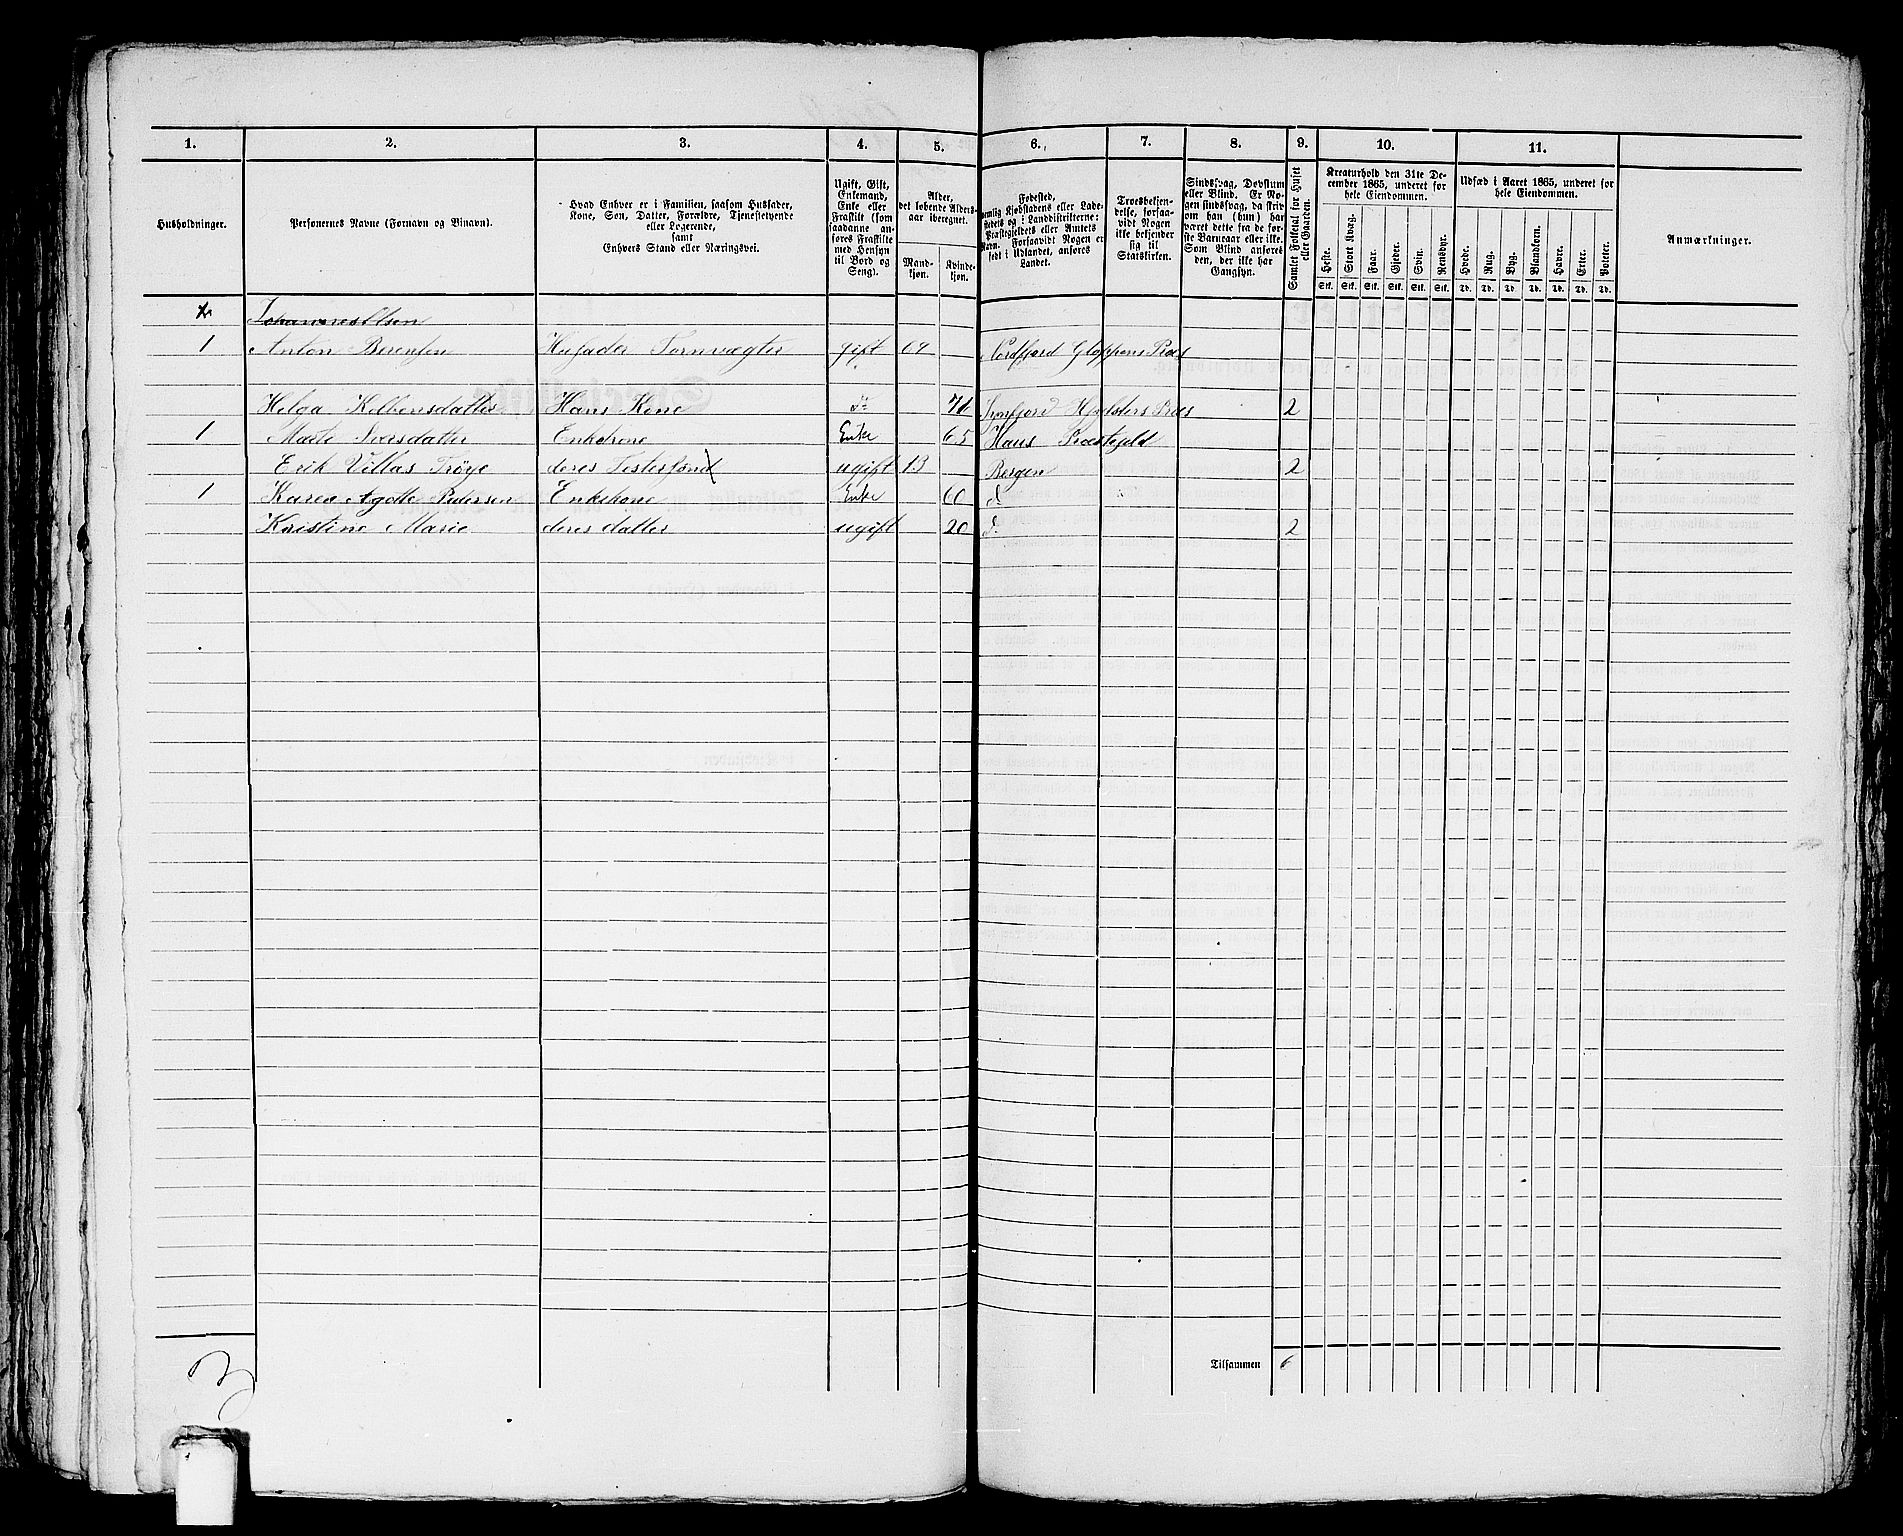 1. 2. 3. 4. 5. 6. 7. 8. 9. 10. 11.
Husholdninger. Personernes Navne (Fornavn og Binavn).
Hvad Enhver er i Familien, saasom Husfader,
Kone, Søn, Datter, Forældre, Tjenestetyende
eller Logerende,
samt
Enhvers Stand eller Næringsvei.
Ugift, Gift,
Enkemand,
Enke eller
Fraskilt (som
saadanne an-
føres Fraskilte
med Hensyn
til Bord og
Seng).
Alder,
det løbende Alders-
aar iberegnet.
Mand-
kjøn.
Kvinde-
kjøn.
Fødested,
nemlig Kjøbstadens eller Lade-
stedets og i Landdistrikterne:
Præstegjeldets eller Amtets
Navn. Forsaavidt Nogen er
født i Udlandet, anføres
Landet.
Troesbekjen-
delse, forsaa-
vidt Nogen
ikke bekjender
sig til
Statskirken.
Sindssvag, Døvstum
eller Blind. Er No-
gen sindssvag, da skriv
om han (hun) har
været dette fra de før-
ste Barneaar eller ikke.
Som Blind ansøres
den, der ikke har
Gangsyn.
Samlet Folketal for Huset
eller Gaarden.
Kreaturhold den 31te De-
cember 1865, underet for
hele Eiendommen.
Heste. Stort Kvæg. Faar. Gjeder. Svin. Rensdyr.
Stk. Stk. Stk. Stk. Stk. Stk.
Udsæd i Aaret 1865, underet for
hele Eiendommen.
Hvede. Rug. Byg. Blandkorn. Havre. Erter. Poteter.
Td. Td. Td. Td. Td. Td. Td.
Anmærkninger.
Johannes Olsen
1 Anton Berensen Husfader gift Nordfjord Gloppens Præs
Helga Kolbensdatter Hans Kone do 71 2
1 Marte Enkekone Enke 65 Haus Præstegjeld
Erik Villas Trøye deres Søstersønd ugift 13 Bergen 2
1 Karen Agatte Pedersen Enkekone Enke 60 d
Kristine Marie deres datter ugift 20 d 2
Tilsammen 6
3